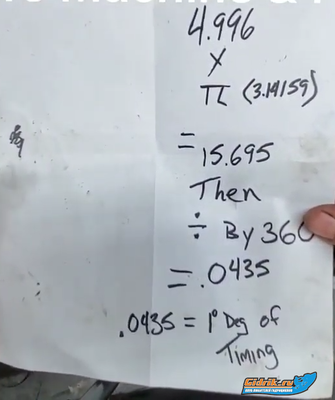 4.996
x
π (3.14159)
= 15.695
Then
÷ By 360
= .0435
.0435 = 1° Deg of
Timing
Gidrik.ru